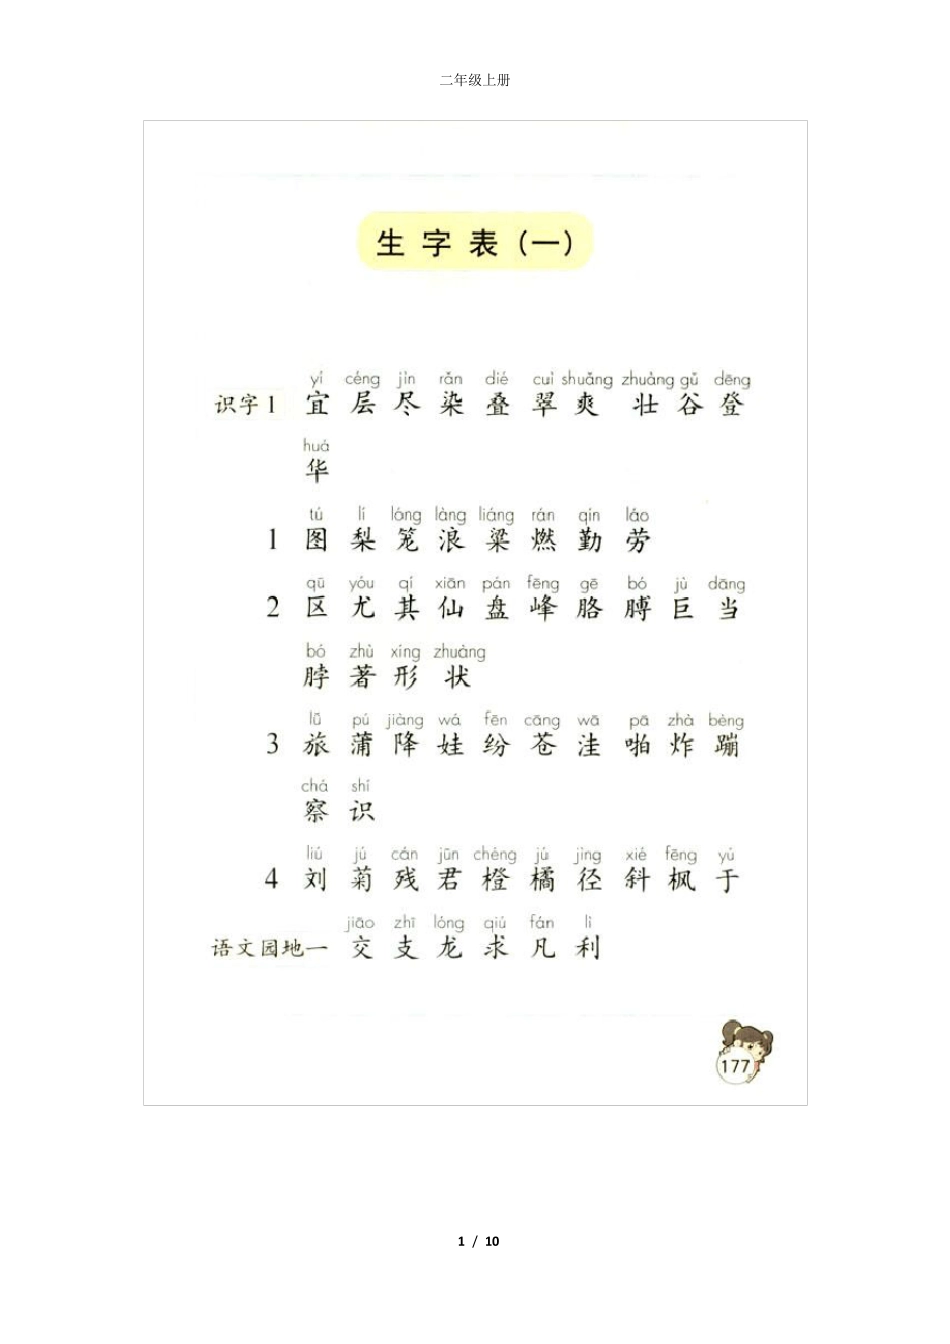 二年级上册
生字表(一)
yí céng jìn rǎn dié cuì shuǎng zhuàng gǔ dēng
识字1 宜 层 尽 染 叠 翠 爽 壮 谷 登
huá
华
tú lí lóng làng liáng rán qín láo
1 图 梨 笼 浪 梁 燃 勤 劳
qū yóu qí xiān pán fēng gē bó jù dāng
2 区 尤 其 仙 盘 峰 胳 膊 巨 当
bó zhù xíng zhuàng
脖 著 形 状
lǚ pú jiàng wá fēn cāng wā pā zhà bèng
3 旅 蒲 降 娃 纷 苍 洼 啪 炸 蹦
chá shí
察 识
liú jú cán jūn chéng jú jìng xié fēng yú
4 刘 菊 残 君 橙 橘 径 斜 枫 于
jiāo zhī lóng qiú fán lì
语文园地一 交 支 龙 求 凡 利
177
1 / 10